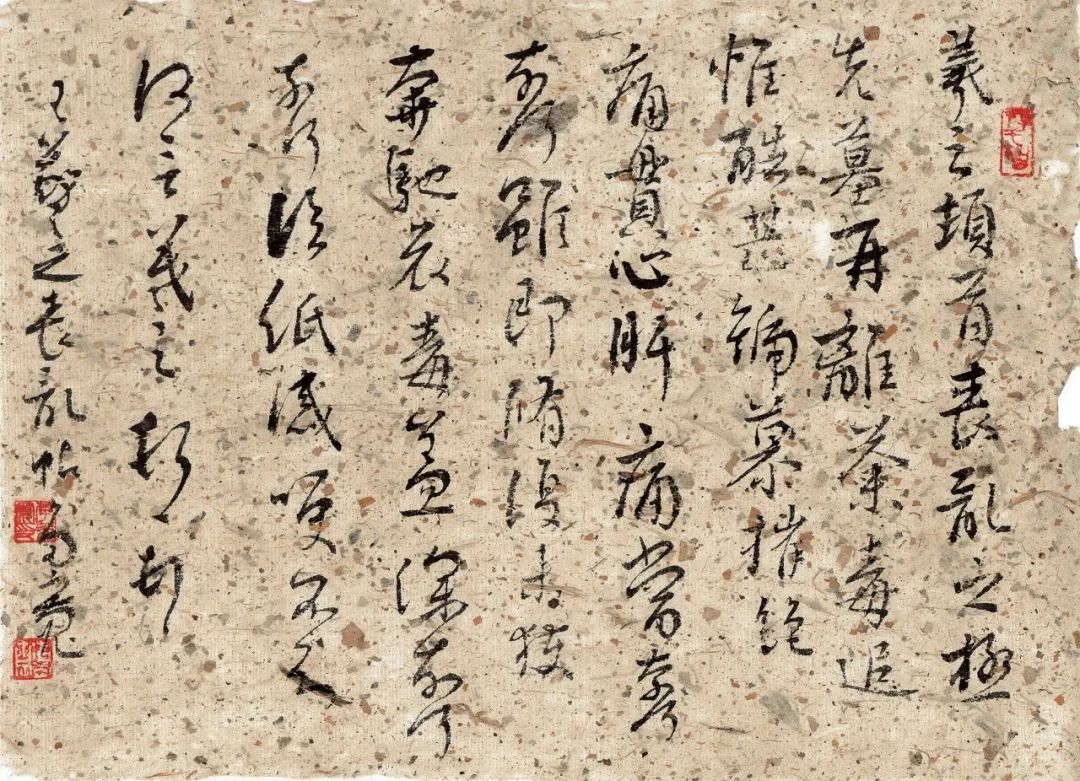 羲之頓首喪亂之極
先墓再離荼毒追
惟酷甚號慕摧絕
痛貫心肝痛當奈何
奈何雖即脩復未獲
奔馳哀毒益深奈何
奈何臨紙感哽不知
何言羲之頓首
王羲之喪亂帖